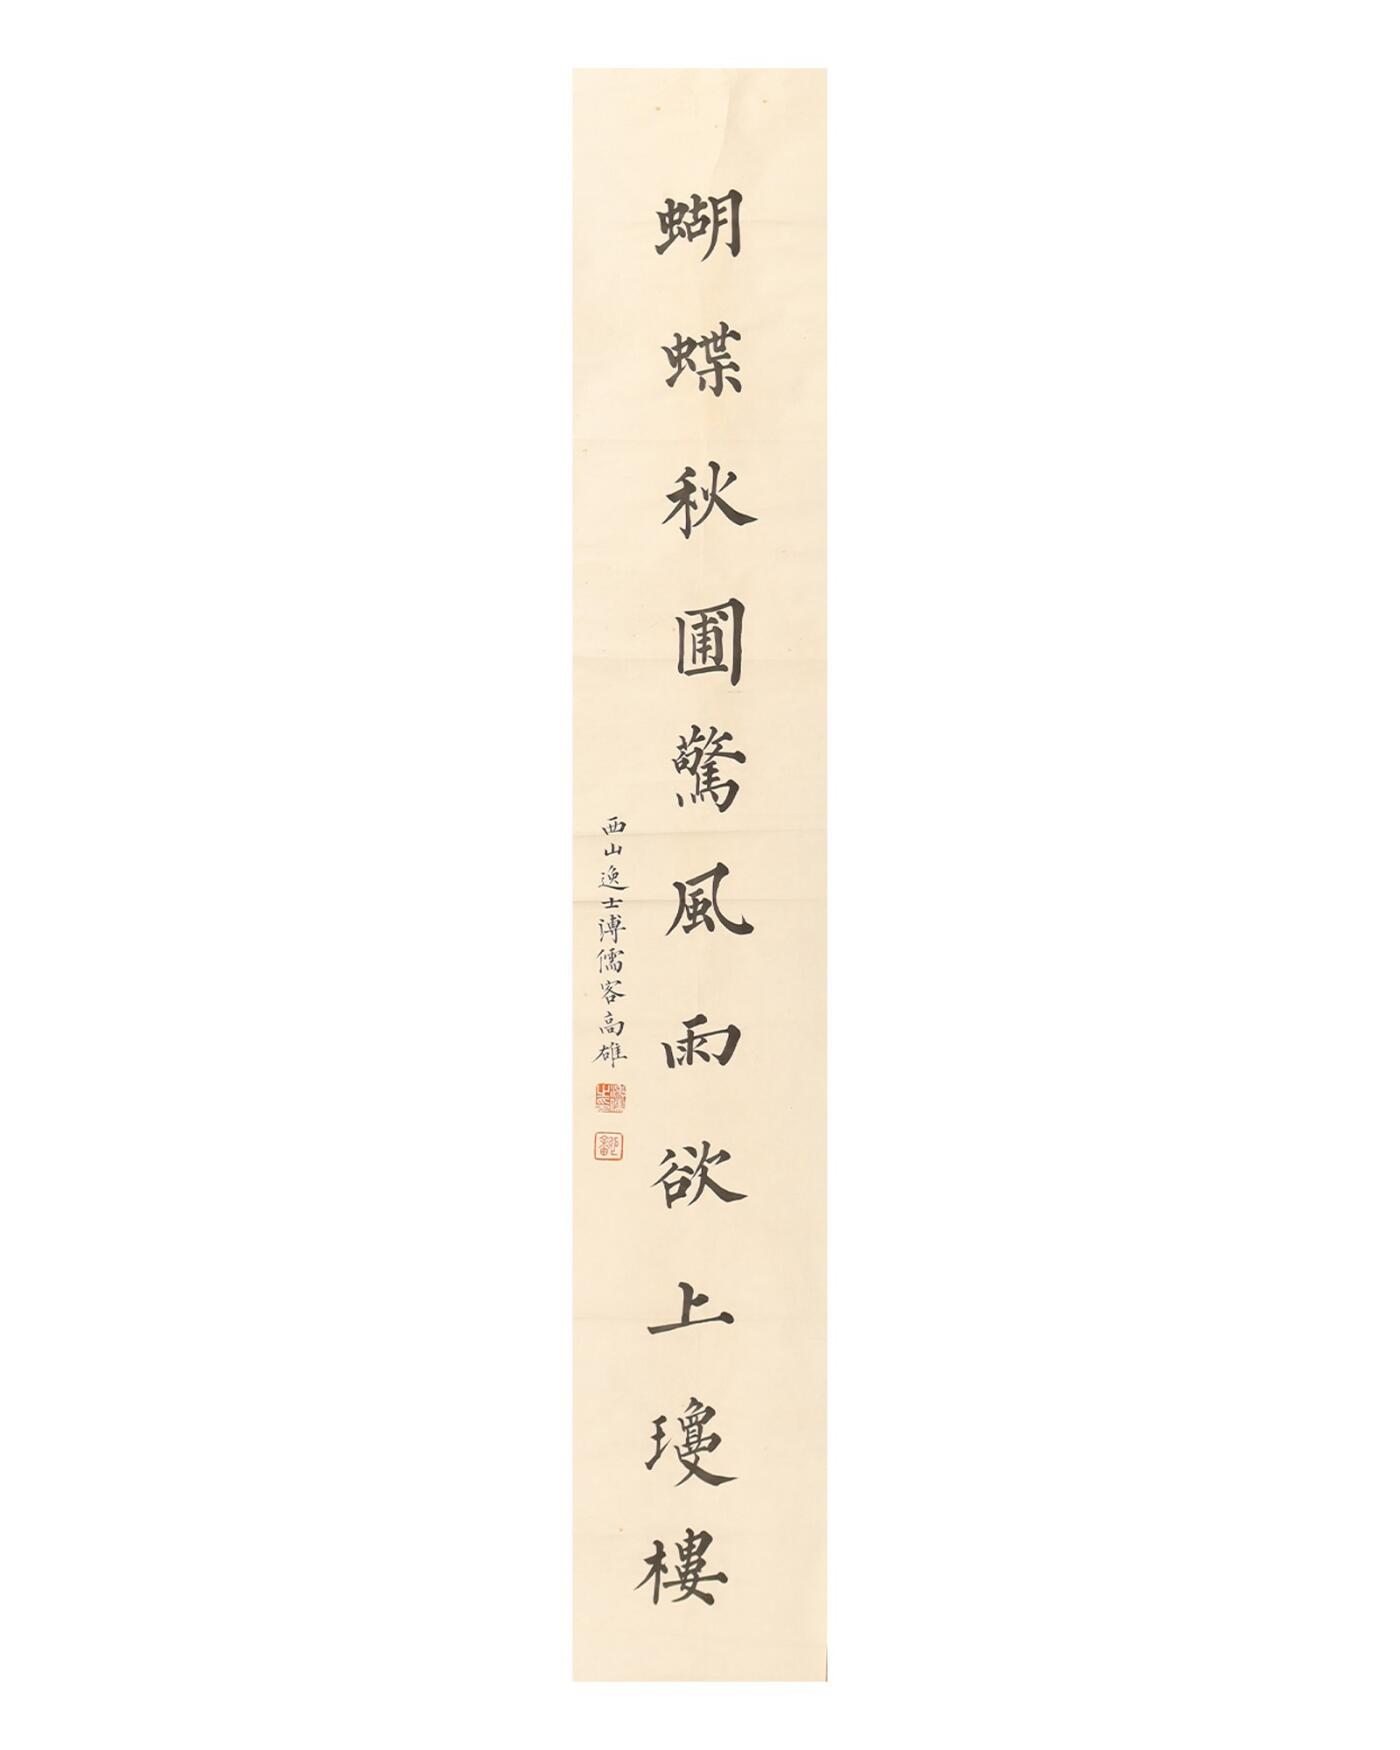 蝴蝶秋圃驚風雨欲上瓊樓
西山逸士溥儒客高雄